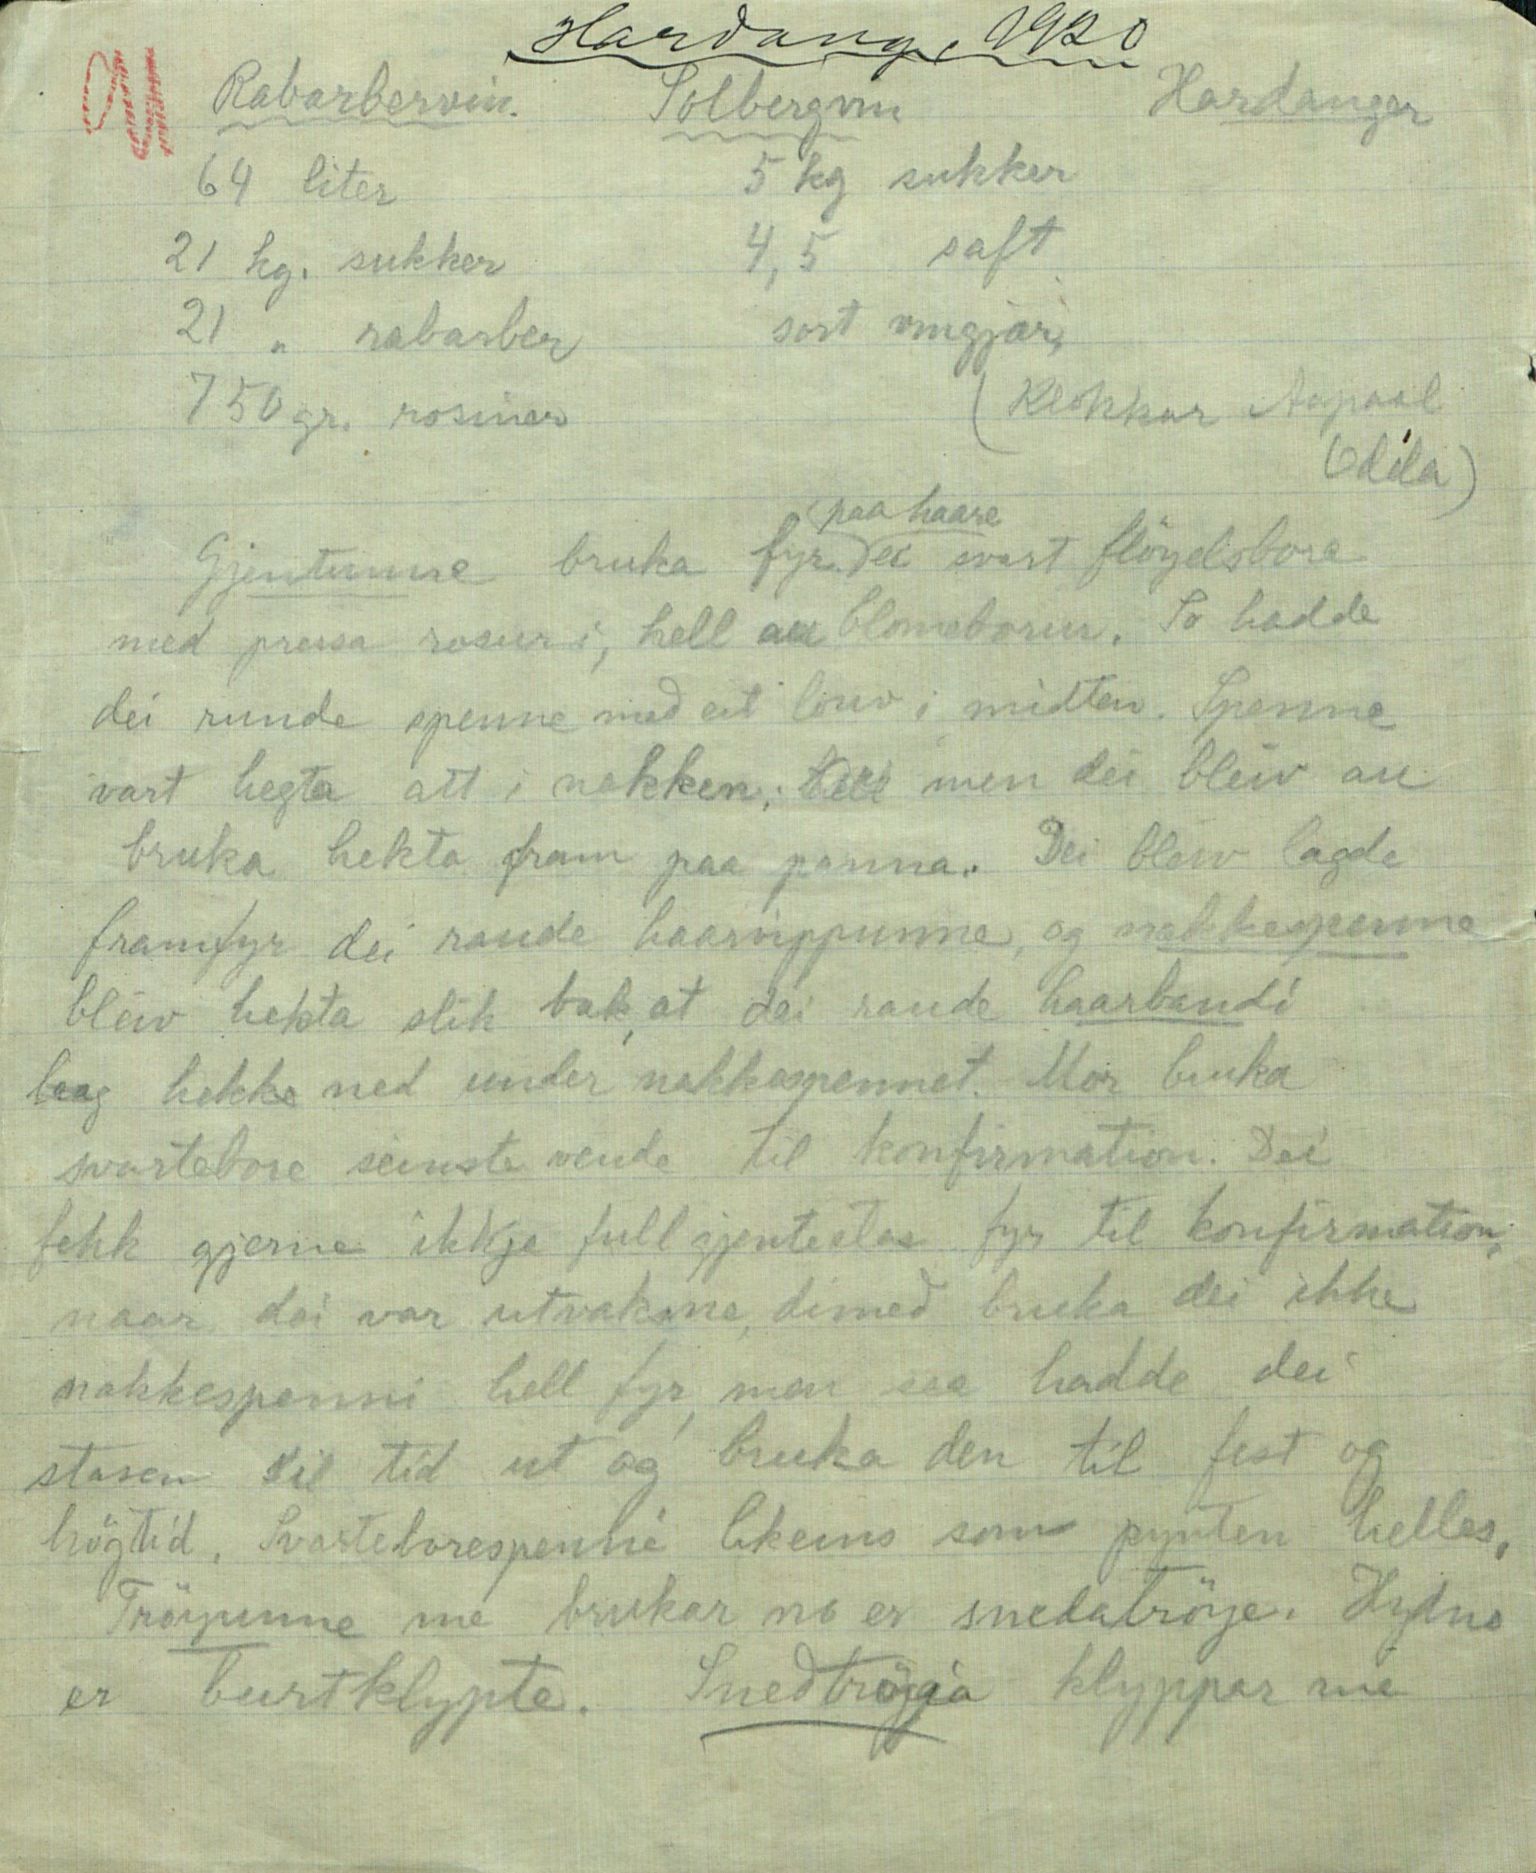 Hardang, 1920
Rabarbervin. Solbergvin Hardanger
64 liter 5 kg sukker
21 kg. sukker 4,5 saft
21 " rabarber sort vingjær,
750 gr. rosiner (Klokkar Aapaal
Odda)
paa haare
Gjentunne bruka fyr ei svart flöyelsbore
med pressa rosur i, hell au blomeborur. So hadde
dei runde spenne med eit lauv i midten. Spenne
vart hegta att i nakken; men dei bleiv au
bruka hekta fram paa panna. Dei bleiv lagde
framfyr dei raude haarvippunne, og nakkespenne
bleiv hekta slik bak, at dei raude haarbandi
laag hekke ned under nakkaspennet. Mor bruka
svartebore seinste vende til konfirmation. Dei
fekk gjerne ikkje full gjentestas fyr til konfirmation,
naar dei var utvaksne, dimed bruka dei ikke
nakkespenni hell fyr, men saa hadde dei
stasen si tid ut og bruka den til fest og
högtid. Svarteborespenni likeins som pynten helles.
Tröyunne me brukar no er snedatröye. Hydno
er burtklypte. Snedtröyia klyppar me